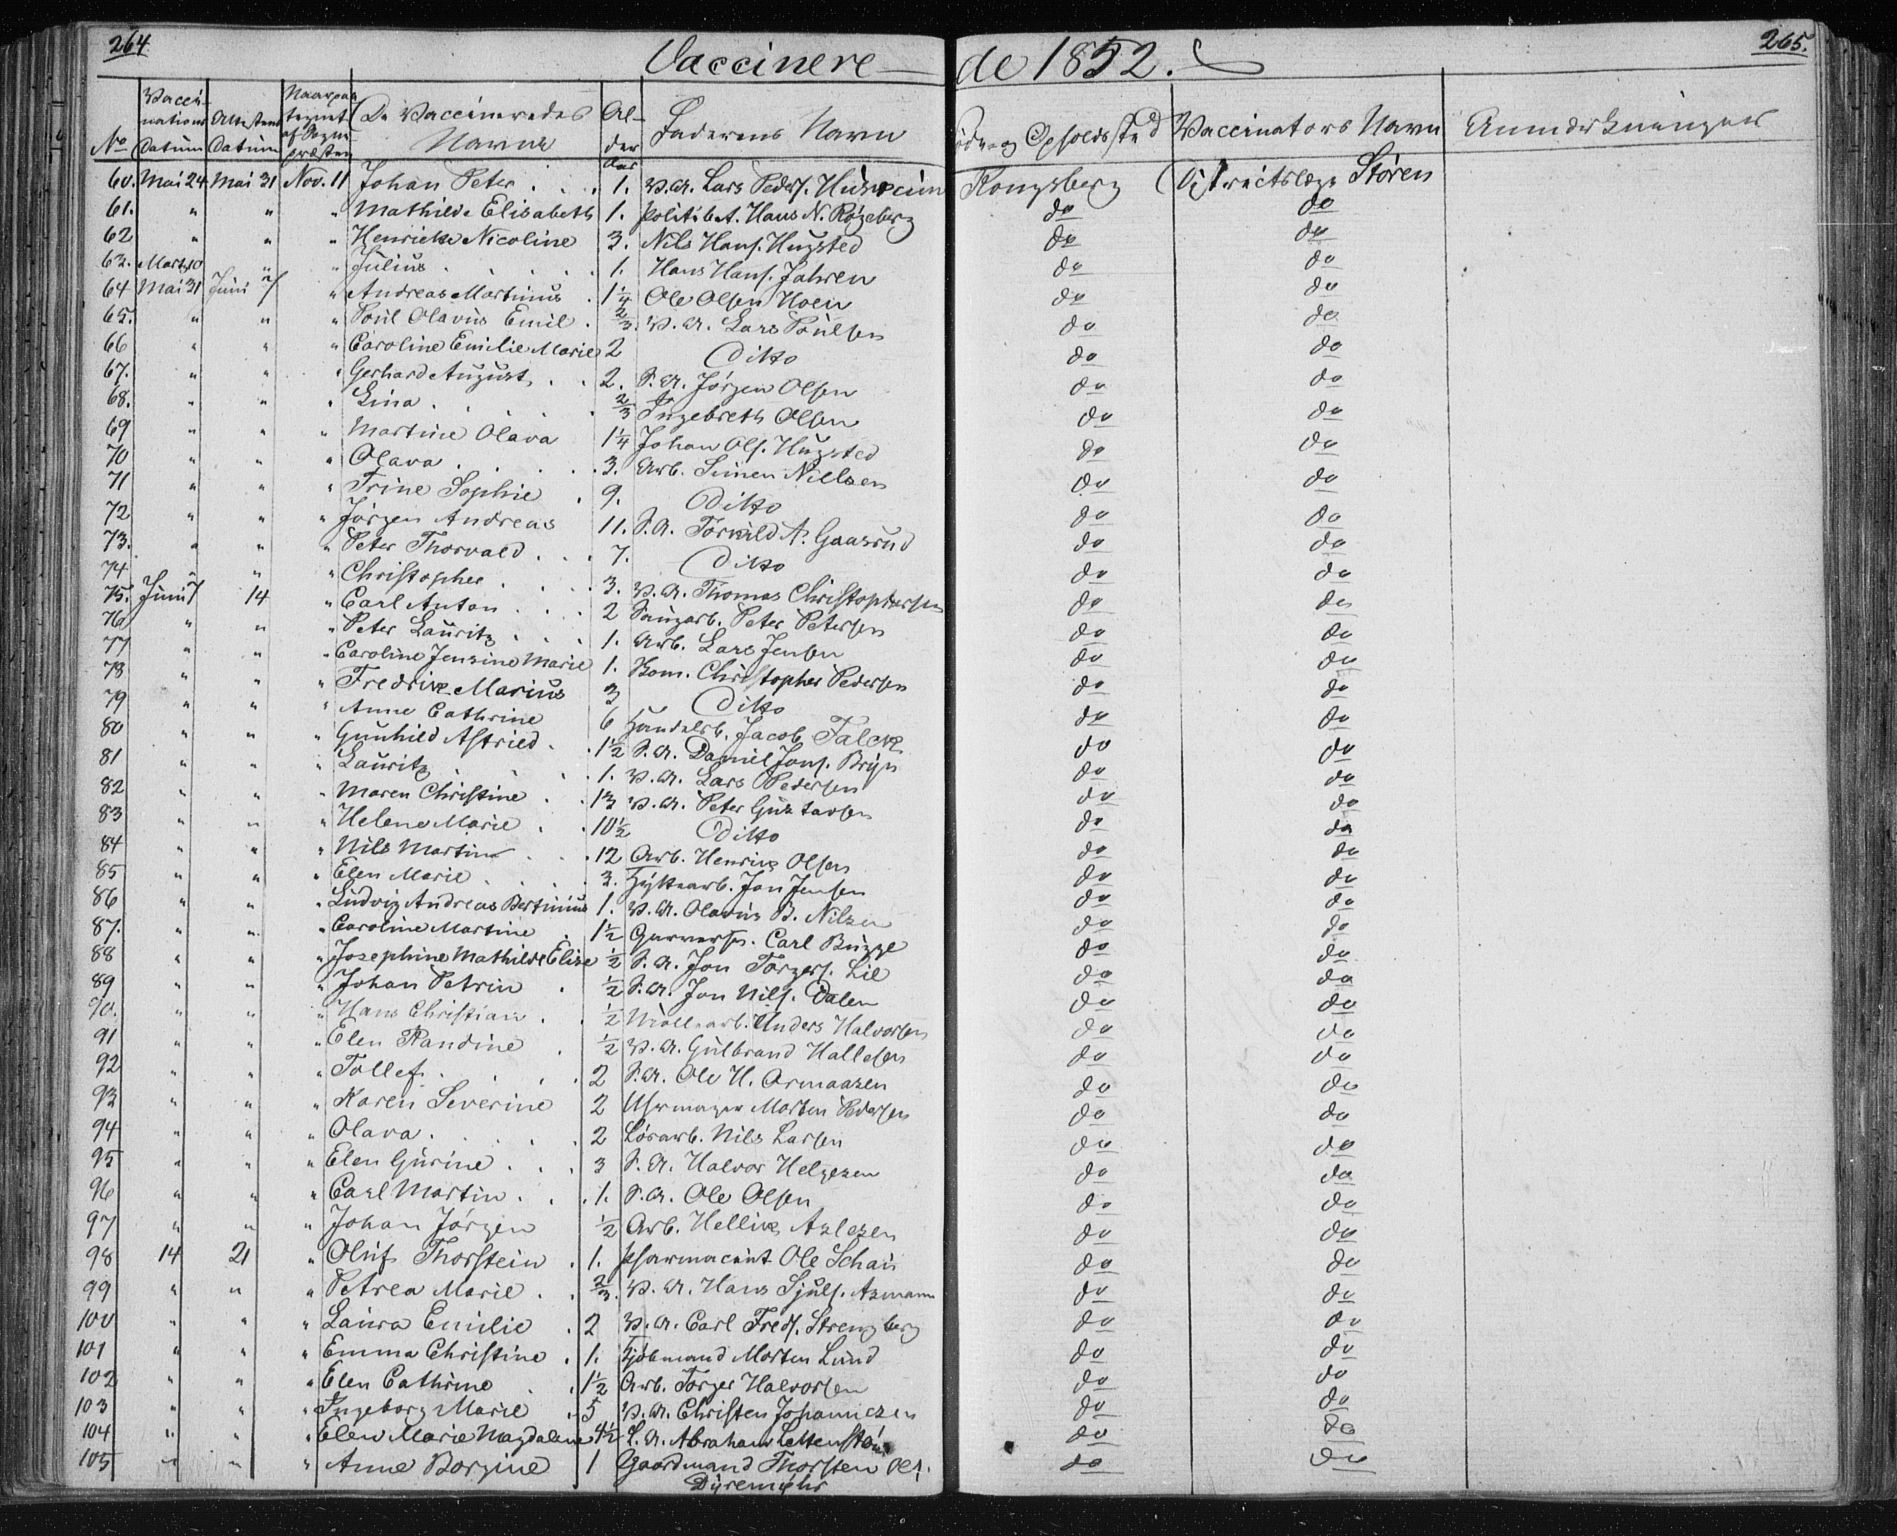 264. Vaccinere- de 1852. 265.
No Vacci-nations Datum Attestens Datum Naar paategnet af Sogne-præsten De Vaccineredes Navne Al-der Aar Faderens Navn Føde og Opholds Sted Vaccinators Navn Anmærkninger
60. Mai 24 Mai 31 Nov. 11 Johan Peter . . . 1. V.A. Lars Peders. Kongsberg Districtslæge Stören
61. " " " Mathilde Elisabeth 1. Politibt. Hans N. Røgeberg do do
62 " " " Henricke Nicoline 3. Nils Hans. Hugsted do do
63. Marts 10 " " Julius . . . 1. Hans Hans. Jahren do do
64 Mai 31 Juni 7 " Andreas Martinus . 1 1/4 Ole Olsen Hoen do do
65. " " " Poul Olavus Emil . 2/3. V. A. Lars Pulsen do do
66 " " " Caroline Emilie Marie 2 Ditto do do
67. " " " Gerhard August . . 2. S. A. Jörgen Olsen do do
68. " " " Lina . . . 2/3 Ingebreth Olsen do do
69 " " " Martine Olava 1 1/4 Johan Ols. Hugsted do do
70 " " " Olava . . . 3. Arb. Simen Nielsen do do
71 " " " Trine Sophie . 9. Ditto do do
72 " " " Jörgen Andreas 11. S.A. Torvald A. Gaasrud do do
73. " " " Peter Thorvald . . . 7. Ditto do do
74 " " " Christopher . . . 3. V. A. Thomas Christophersen do do
75. Juni 7 14 " Carl Anton . . . 2 Peter Petersen do do
76 " " " Peter Lauritz . . . 1. Arb. Lars Jensen do do
77 " " " Caroline Jensine Marie 1. Christopher Pedersen do do
78 " " " Fredrik Marius 3 Ditto do do
79 " " " Anne Cathrine 6 Handelsb. Jacob Falck do do
80 " " " Gunhild Astried . . 1 1/2 S. A. Daniel Jons. Bryn do do
81 " " " Lauritz . . . 1. V. A. Lars Pedersen do do
82 " " " Maren Christine . . V. A. Peter Gustavsen do do
83 " " " Helene Marie . . 10 1/2 Ditto do do
84 " " " Nils Martin . . . 12 Arb. Henrik Olsen do do
85 " " " Elen Marie . . . 3. Hyttearb. Jon Jensen do do
86 " " " Ludvig Andreas Bertinius 1. V. A. Olavus B. Nilsen do do
87. " " " Caroline Martine . 1 1/2 Garversv. Carl Bugge do do
88 " " " Josephine Mathilde Elise 1/2 S. A. Jon Torgers. Lie do do
89 " " " Johan Petrin . 1/2 S. A. Jon Nils. Dalen do do
90. " " " Hans Christian . . 1/2 Anders Halvorsen do do
91 " " " Elen Randine . 1/2 V. A. Gulbrand Hallesen do do
92 " " " Tollef . . . . 2 S. A. Ole H. Ormaasen do do
93 " " " Karen Severine 2 Uhrmager Morten Pedersen do do
94 " " " Olava . . . . 2 Lösarb. Nils Larsen do do
95 " " " Elen Gurine . . . 3 S. A. Halvor Helgesen do do
96 " " " Carl Martin . . . 1. S. A. Ole Olsen do do
97 " " " Johan Jörgen 1/2 Arb. Hellik Aslesen do do
98 14 21 " Oluf Thorstein . 1. Pharmaceut Ole Schau do do
99 " " " Petrea Marie . . 2/3. V. A. Hans Sjuls. Asmann do do
100 " " " Laura Emilie . 2 V. A. Carl Freds. Strengberg do do
101 " " " Emma Christine . 1. Kjöbmand Morten Lund do do
102 " " " Elen Cathrine . 1 1/2 Arb. Torger Halvorsen do do
103 " " " Ingeborg Marie . 5 V. A. Christen Johannesen do do
104 " " " Elen Marie Magdalene 4 1/2 S. A. Abraham do do
105 " " " Anne Borgine 1 Gaardmand Thorsten Ols. do do
Dyremyhr